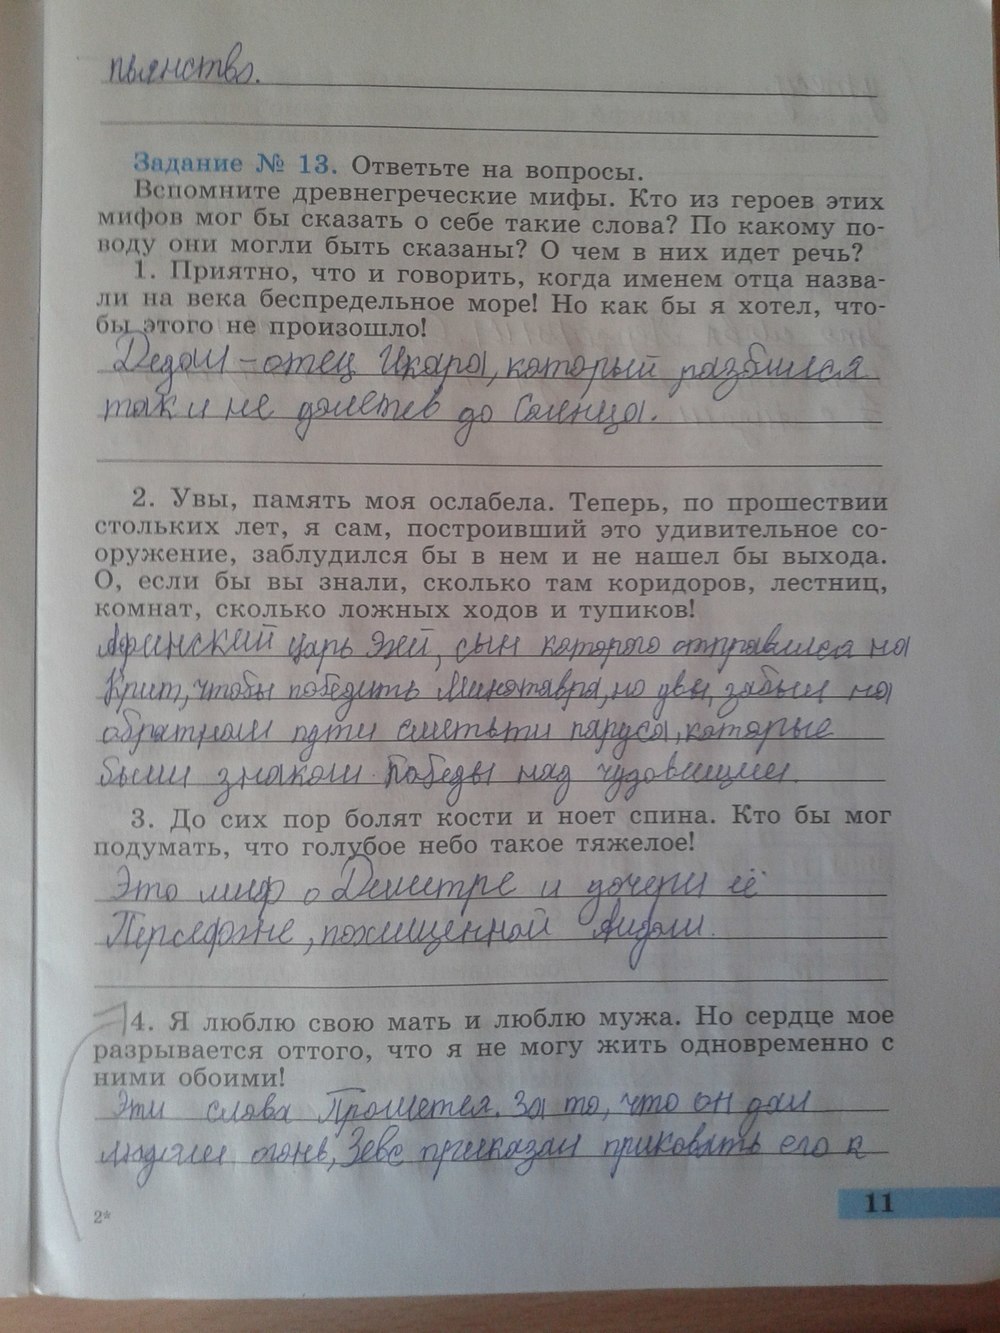 пьянство.
Задание № 13. Ответьте на вопросы.
Вспомните древнегреческие мифы. Кто из героев этих
мифов мог бы сказать о себе такие слова? По какому по-
воду они могли быть сказаны? О чем в них идет речь?
1. Приятно, что и говорить, когда именем отца назва-
ли на века беспредельное море! Но как бы я хотел, что-
бы этого не произошло!
Дедал – отец Икара, который разбился
так и не долетев до Солнца.
2. Увы, память моя ослабела. Теперь, по прошествии
стольких лет, я сам, построивший это удивительное со-
оружение, заблудился бы в нем и не нашел бы выхода.
О, если бы вы знали, сколько там коридоров, лестниц,
комнат, сколько ложных ходов и тупиков!
Афинский царь Эгей, сын которого отправился на
Крит, чтобы победить Минотавра, но забыл на
обратном пути паруса, которые
были знаком Победы над чудовищем.
3. До сих пор болят кости и ноет спина. Кто бы мог
подумать, что голубое небо такое тяжелое!
Это миф о Деметре и дочери её
Персефоне, похищенной Аидом.
4. Я люблю свою мать и люблю мужа. Но сердце мое
разрывается оттого, что я не могу жить одновременно с
ними обоими!
Эти слова Прометея. За то, что он дал
людям огонь, Зевс приказал приковать его к
2*
11